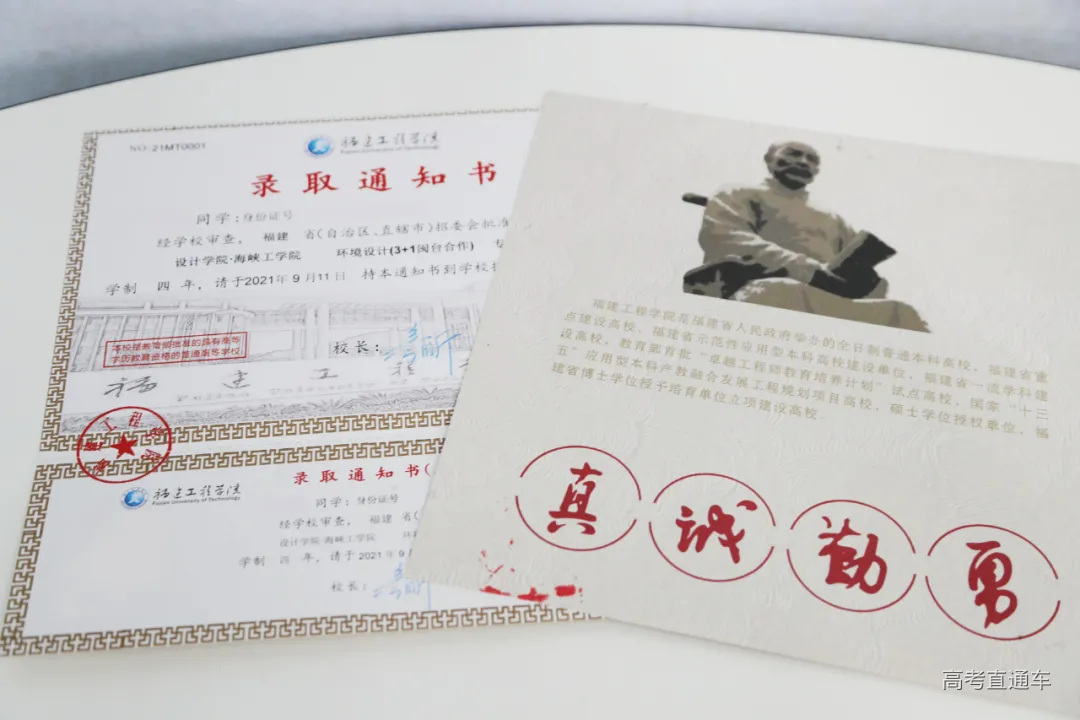 NO:21MT0001
福建工程学院
Fujian University of Technology
录取通知书
同学:身份证号
经学校审查, 福建 省(自治区、直辖市)招委会批准
设计学院·海峡工学院 环境设计(3+1闽台合作) 专
学制 四 年, 请于2021年9月11日 持本通知书到学校
本校是教育部批准的具有高等
学历教育资格的普通高等学校
校长:
福 建 工 程
福建工程学院
Fujian University of Technology
录取通知书(
同学: 身份证号
经学校审查, 福建 省(
设计学院·海峡工学院 环
学制 四 年, 请于2021年9月
校长:
福建工程学院是福建省人民政府举办的全日制普通本科高校、福建省重
点建设高校、福建省示范性应用型本科高校建设单位、福建省一流学科建
设高校、教育部首批“卓越工程师教育培养计划”试点高校、国家“十三
五”应用型本科产教融合发展工程规划项目高校、硕士学位授权单位、福
建省博士学位授予培育单位立项建设高校.
真
诚
勤
勇
高考直通车